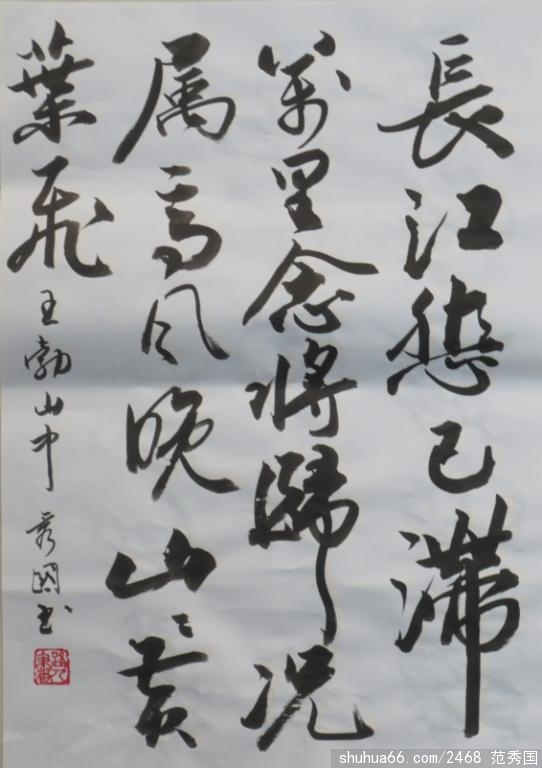 長江悲已滯
萬里念將歸況
属高風晚山々黃
葉飛
王勃山中 秀國书
shuhua66.com/2468 范秀国